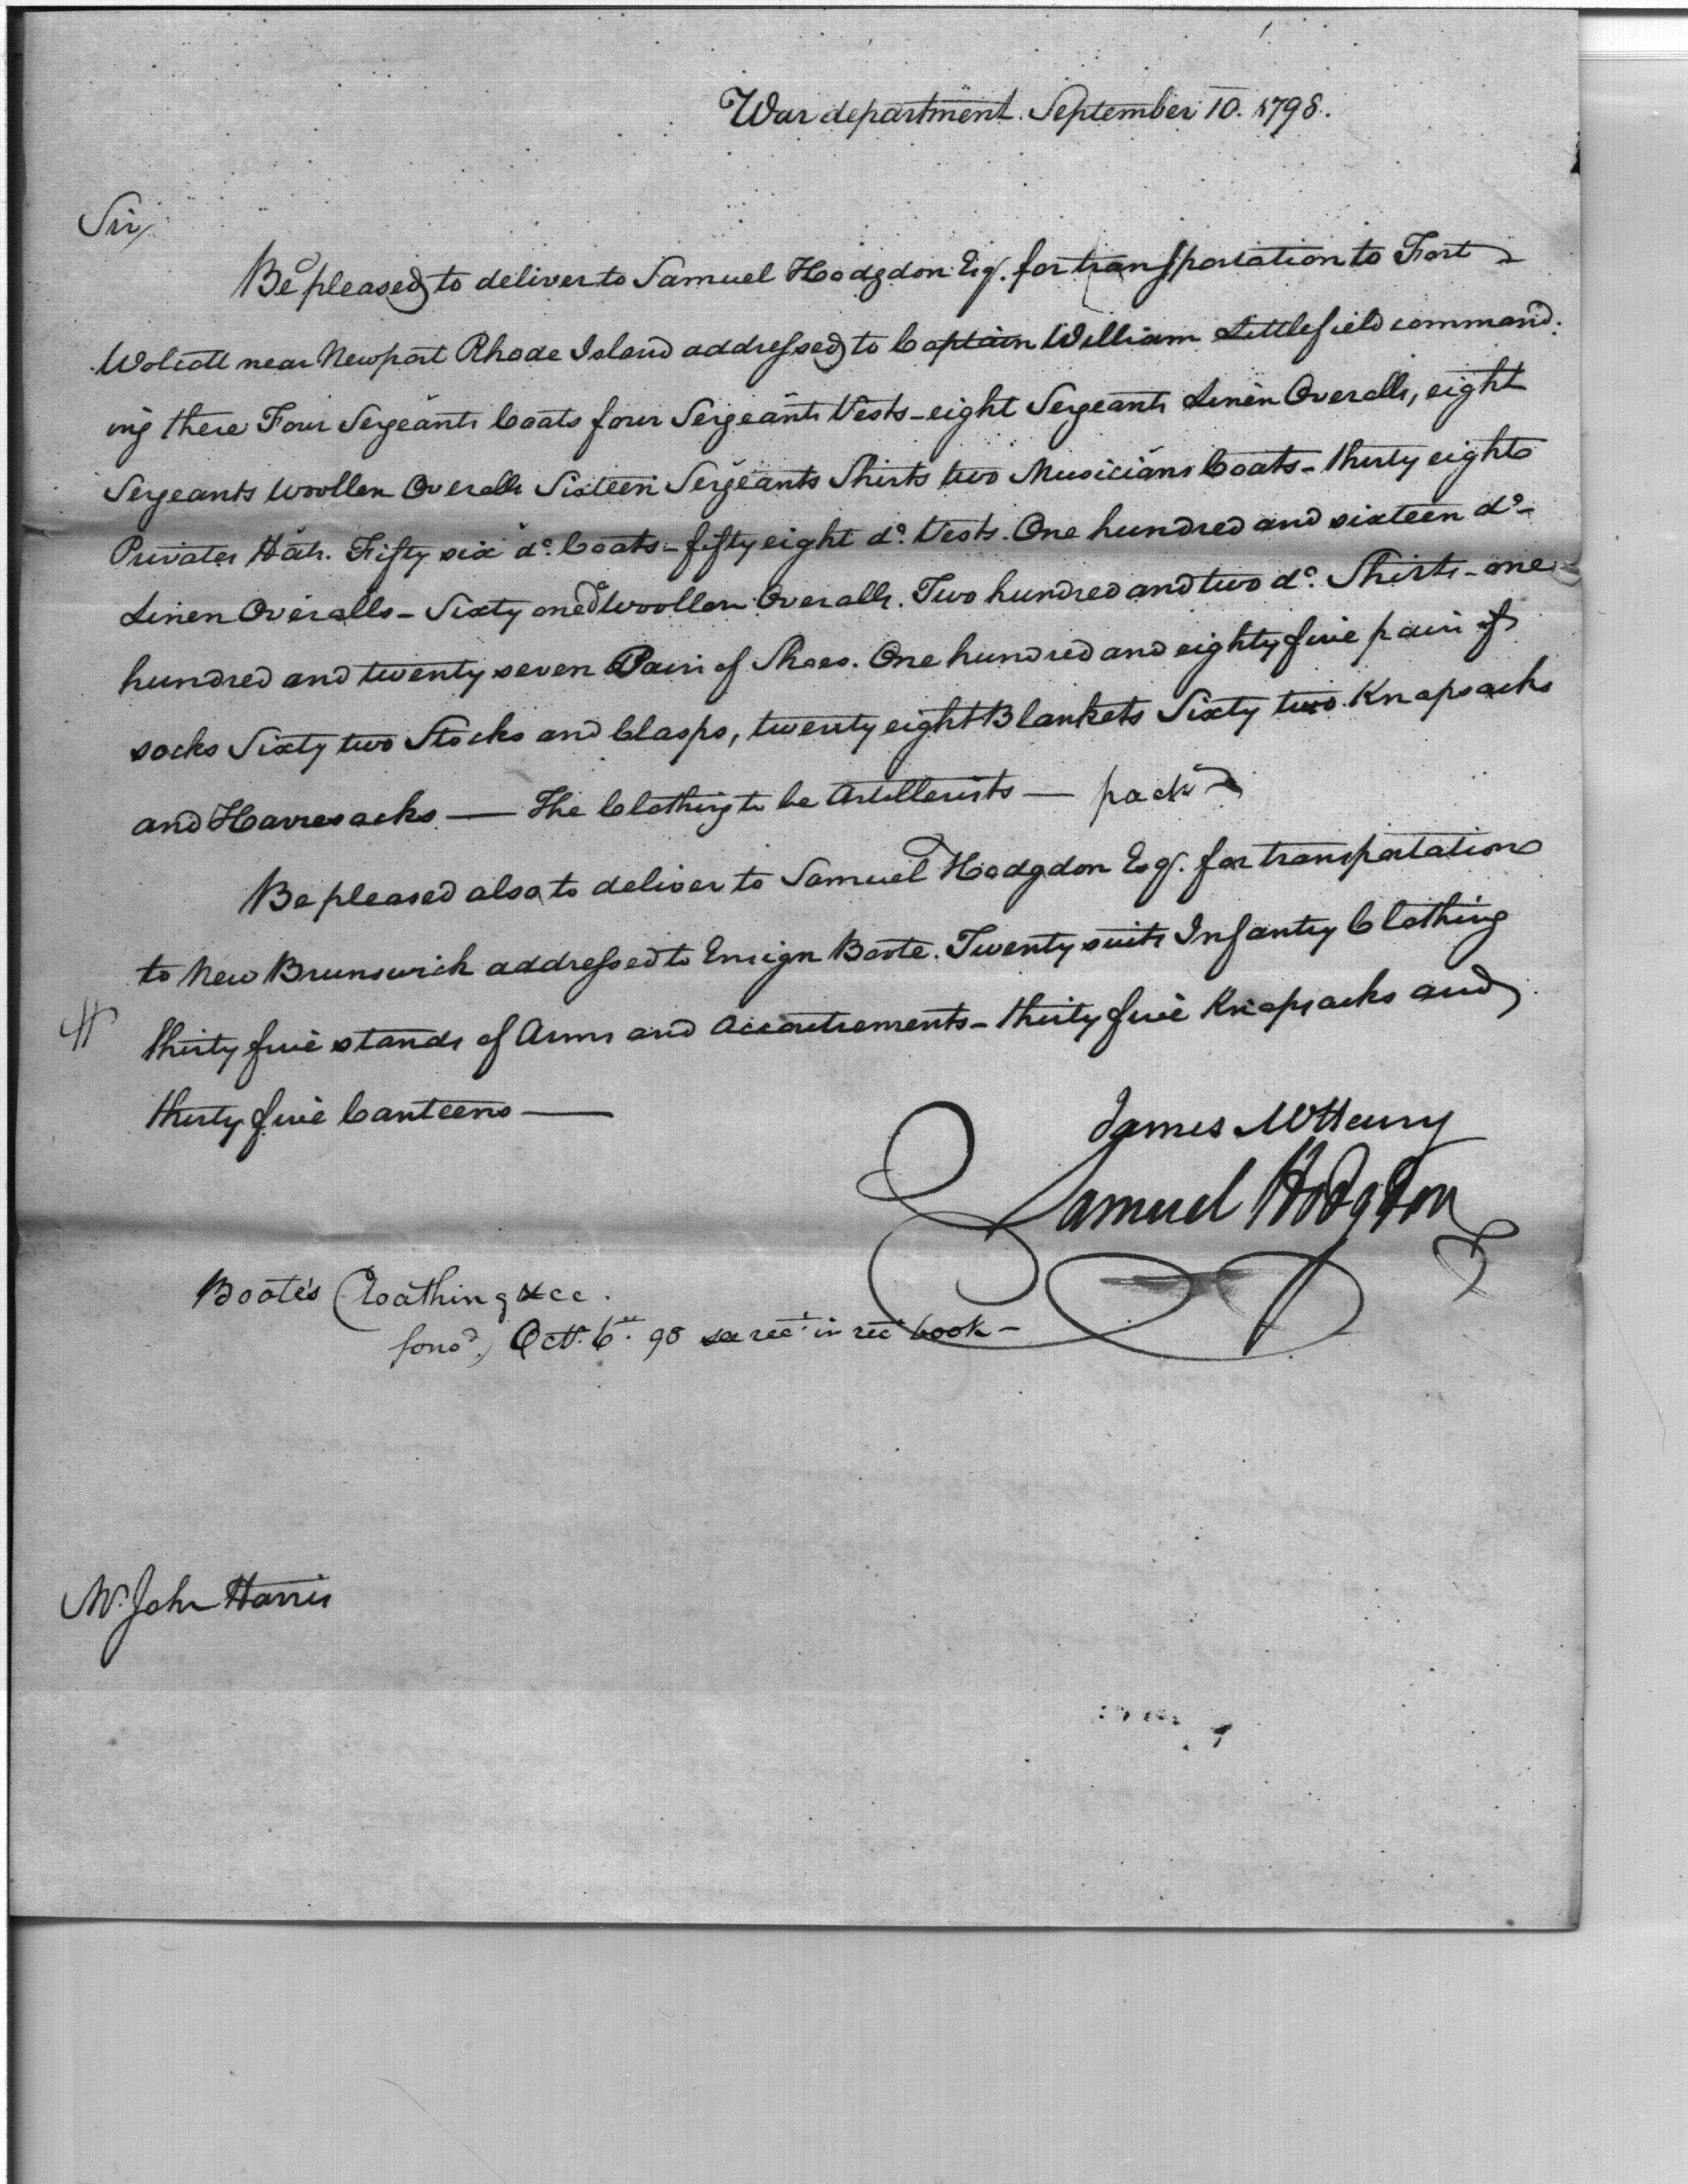 War department. September 10. 1798.
Sir,
Be pleased to deliver to Samuel Hodgdon Esq. for transportation to Fort
Wolcott near Newport Rhode Island addressed to Captain William Littlefield command:
ing there Four Sergeants Coats four Sergeants Vests - eight Sergeants Linen Overalls, eight
Sergeants Woollen Overalls Sixteen Sergeants Shirts two Musicians Coats - thirty eight
Privates Hats. Fifty six do. Coats - fifty eight do. Vests. One hundred and sixteen do -
Linen Overalls - Sixty one do Woollen Overalls. Two hundred and two do. Shirts - one
hundred and twenty seven Pair of Shoes. One hundred and eighty five pair of
socks Sixty two Stocks and Clasps, twenty eight Blankets Sixty two Knapsacks
and Havresacks — The Clothing to be Artillerists — pack'd
Be pleased also to deliver to Samuel Hodgdon Esq. for transportation
to New Brunswick addressed to Ensign Boote. Twenty suits Infantry Clothing
thirty five stands of Arms and Accoutrements - thirty five Knapsacks and
thirty five Canteens —
James McHenry
Samuel Hodgdon
Boote's Cloathing &cc.
Octr. 6th. 98 see rect. in rect book -
Mr. John Harris